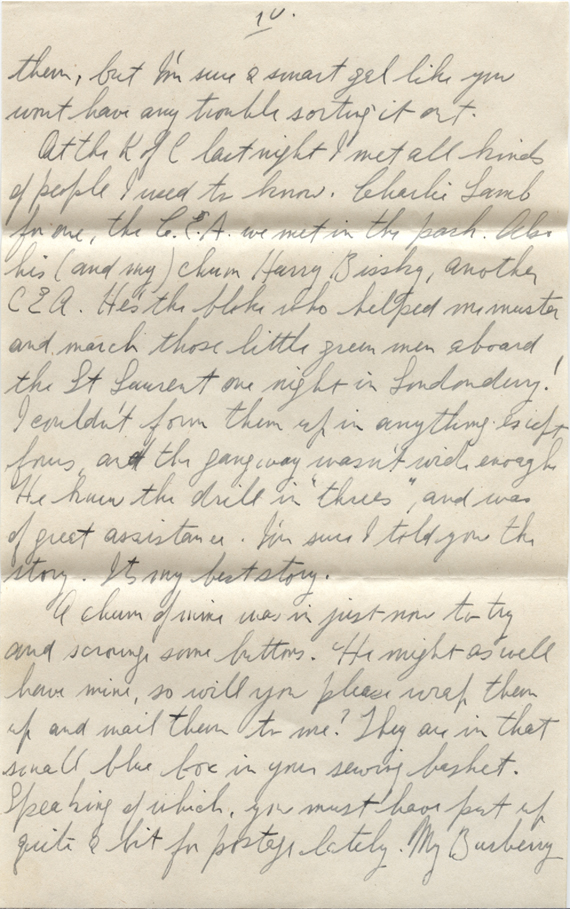 10.
them, but I'm sure a smart gal like you
wont have any trouble sorting it out.
At the K of C last night I met all kinds
of people I used to know. Charlie Lamb
for one, the C.E.A. we met in the park. Also
his (and my) chum Harry, another
C E A. He's the bloke who helped me muster
and march those little green men aboard
the St Laurent one night in Londonderry!
I couldn't form them up in anything except
fours, and the gangway wasn't wide enough
He knew the drill in "threes", and was
of great assistance. I'm sure I told you the
story. Its my best story.
A chum of mine was in just now to try
and scrounge some buttons. He might as well
have mine, so will you please wrap them
up and mail them to me? They are in that
small blue box in your sewing basket.
Speaking of which, you must have put up
quite a bit for postage lately. My Burberry